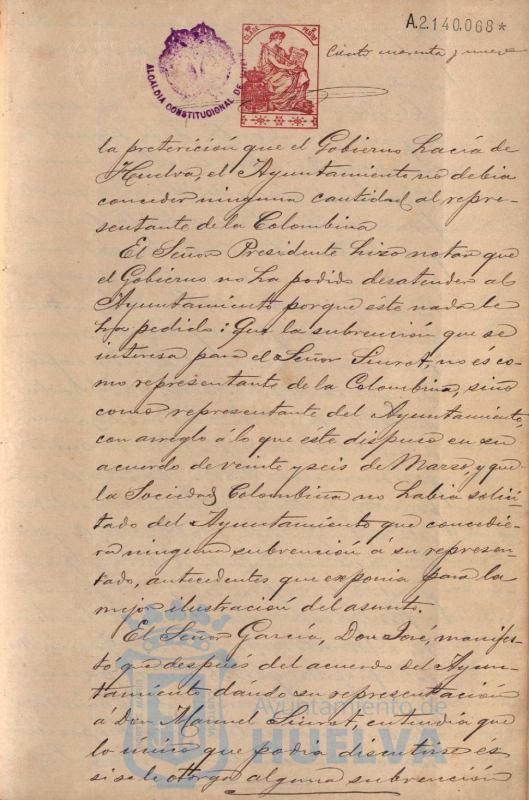 A.2.140.068*
CLASE
PESETA
ALCALDIA CONSTITUCIONAL DE
Ciento noventa y nueve
la pretericion que el Gobierno hacía de
Huelva, el Ayuntamiento no debia
conceder ninguna cantidad al repre-
sentante de la Colombina
El Señor Presidente hizo notar que
el Gobierno no ha podido desatender al
Ayuntamiento porque éste nada le
ha pedido: Que la subvención que se
interesa para el Señor Siurot, no es co
mo representante de la Colombina, sino
como representante del Ayuntamiento,
con arreglo á lo que éste dispuso en su
acuerdo de veinte y seis de Marzo, y que
la Sociedad Colombina no habia solici-
tado del Ayuntamiento que concedie-
ra ninguna subvención á su represen-
tado, antecedentes que exponia para la
mejor ilustración del asunto.
El Señor García, Don José, manifes-
tó que despues del acuerdo del Ayun-
tamiento dando su representación
á Don Manuel Siurot, entendia que
lo único que podia discutirse es
si se le otorga alguna subvención
Ayuntamiento de
HUELVA